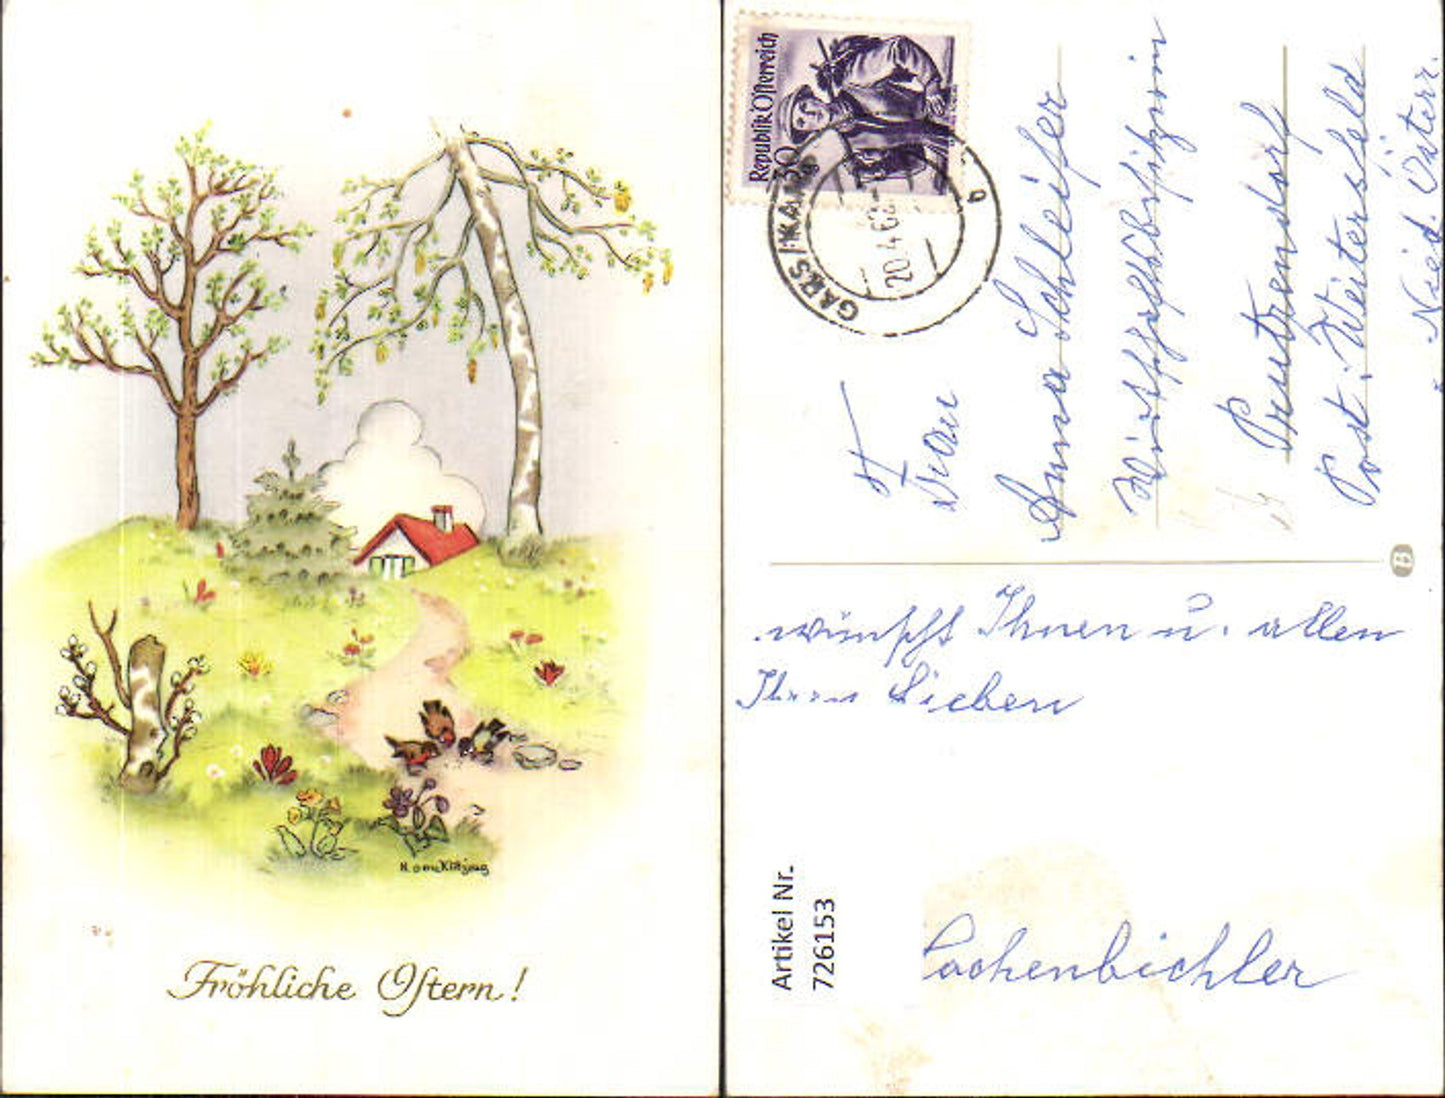 Fröhliche Ostern!
Republik Österreich
30
GARS/KAMP
20.4.62
b
Frau
Anna Schleifer
Wirtschaftsbesitzerin
Post: Weitersfeld
Nied. Österr.
B
wünscht Ihnen u. allen
Ihren Lieben
Lachenbichler
Artikel Nr.
726153